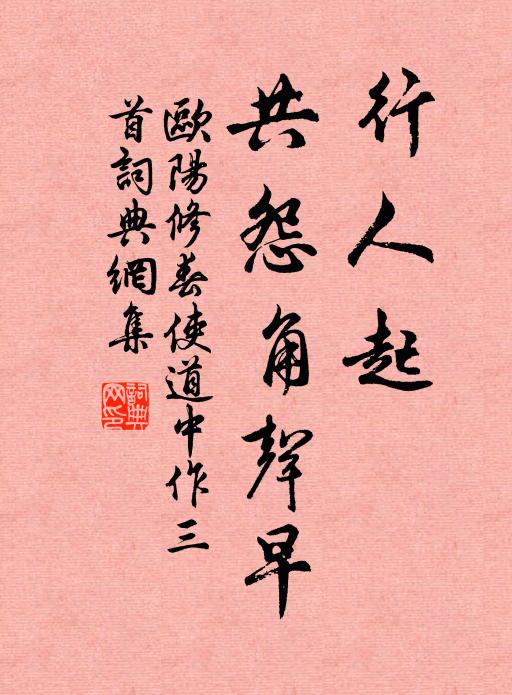 行人起
共怨角聲早
歐陽修奉使道中作三
首詞典網集
詞典网印